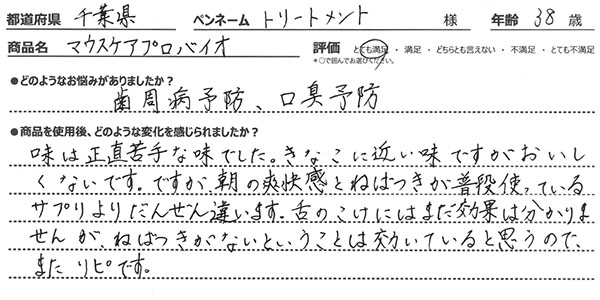 都道府県 千葉県 ペンネーム トリートメント 様 年齢 38 歳
商品名 マウスケアプロバイオ 評価 とても満足・満足・どちらとも言えない・不満足・とても不満足
*○で囲んでお選びください。
●どのようなお悩みがありましたか?
歯周病予防、口臭予防
●商品を使用後、どのような変化を感じられましたか?
味は正直苦手な味でした。きなこに近い味ですがおいし
くないです。ですが、朝の爽快感とねばつきが普段使っている
サプリよりだんぜん違います。舌のこけにはまだ効果は分かりま
せんが、ねばつきがないということは効いていると思うので、
またリピです。